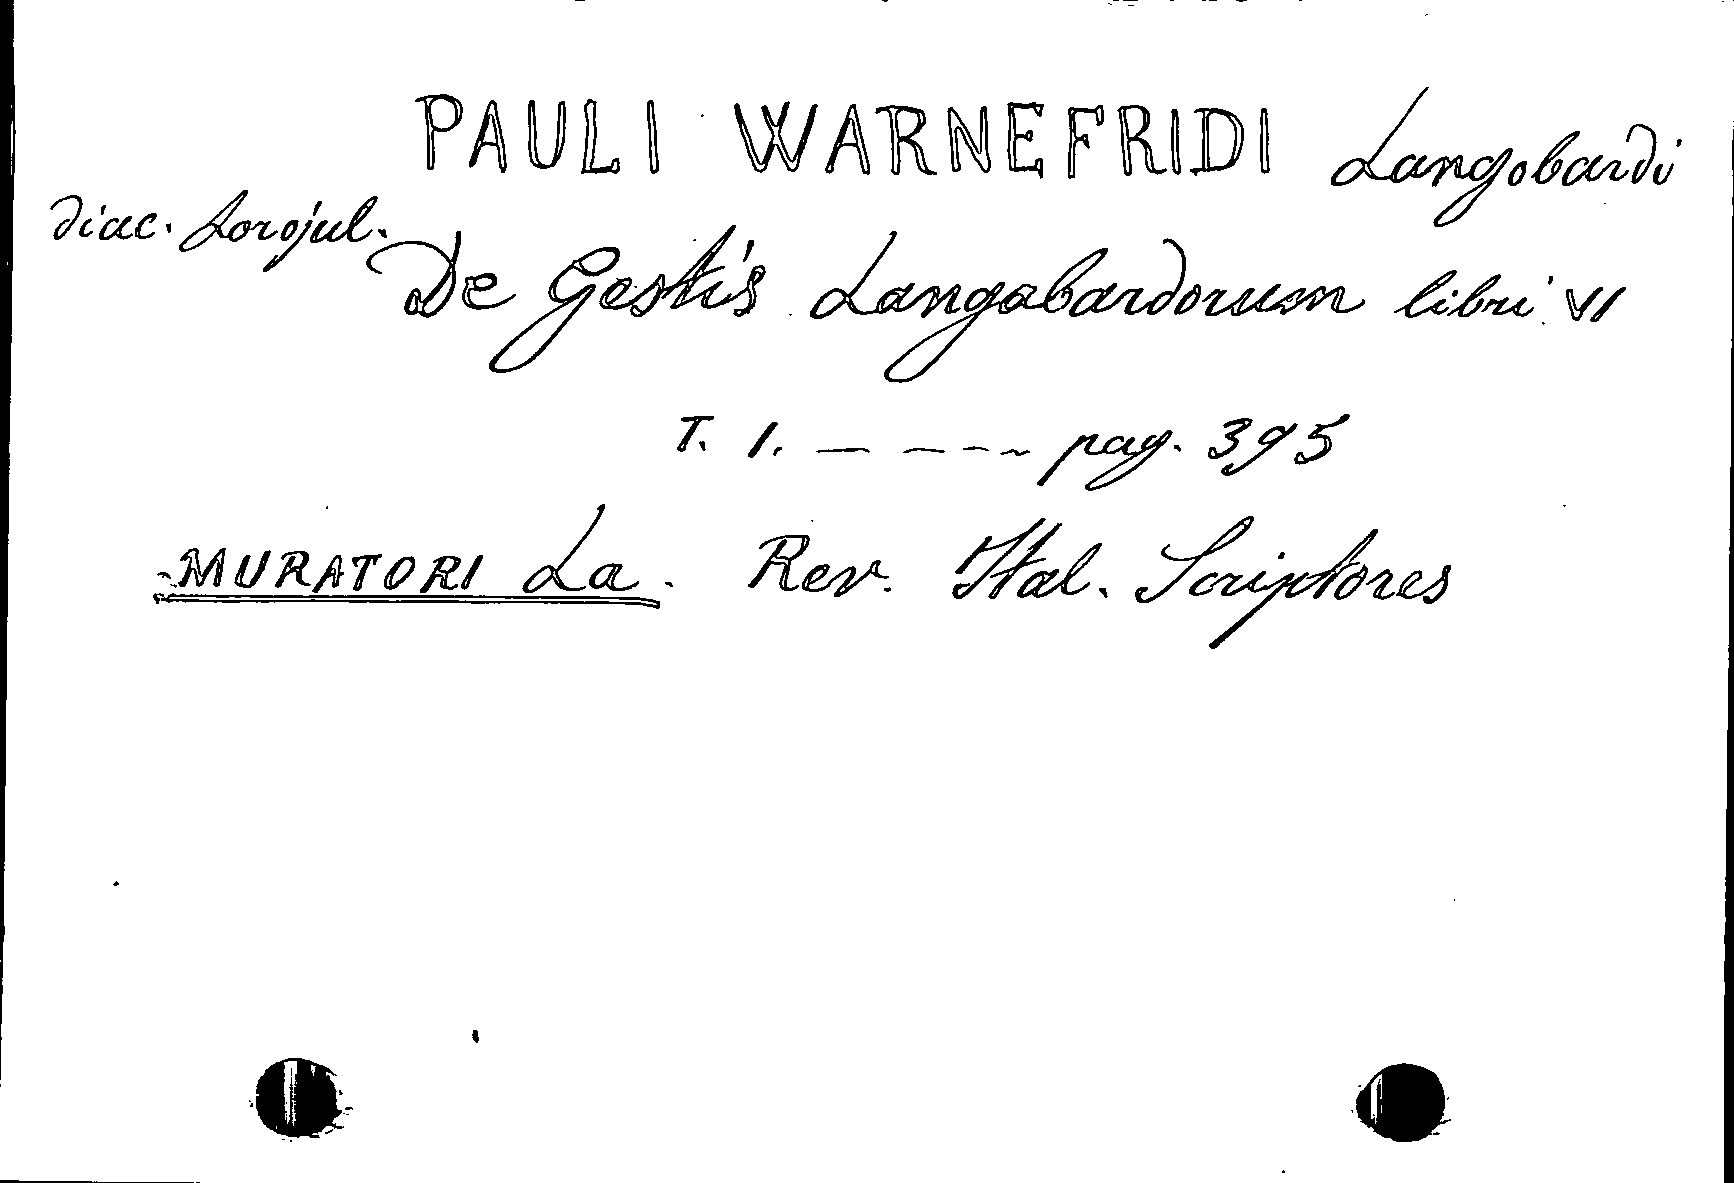 PAULI WARNEFRIDI Langobardi
diac. Forojul.
De Gestis Langobardorum libri VI
T. 1. — — - - ~ pag. 395
MURATORI La. Rer. Ital. Scriptores